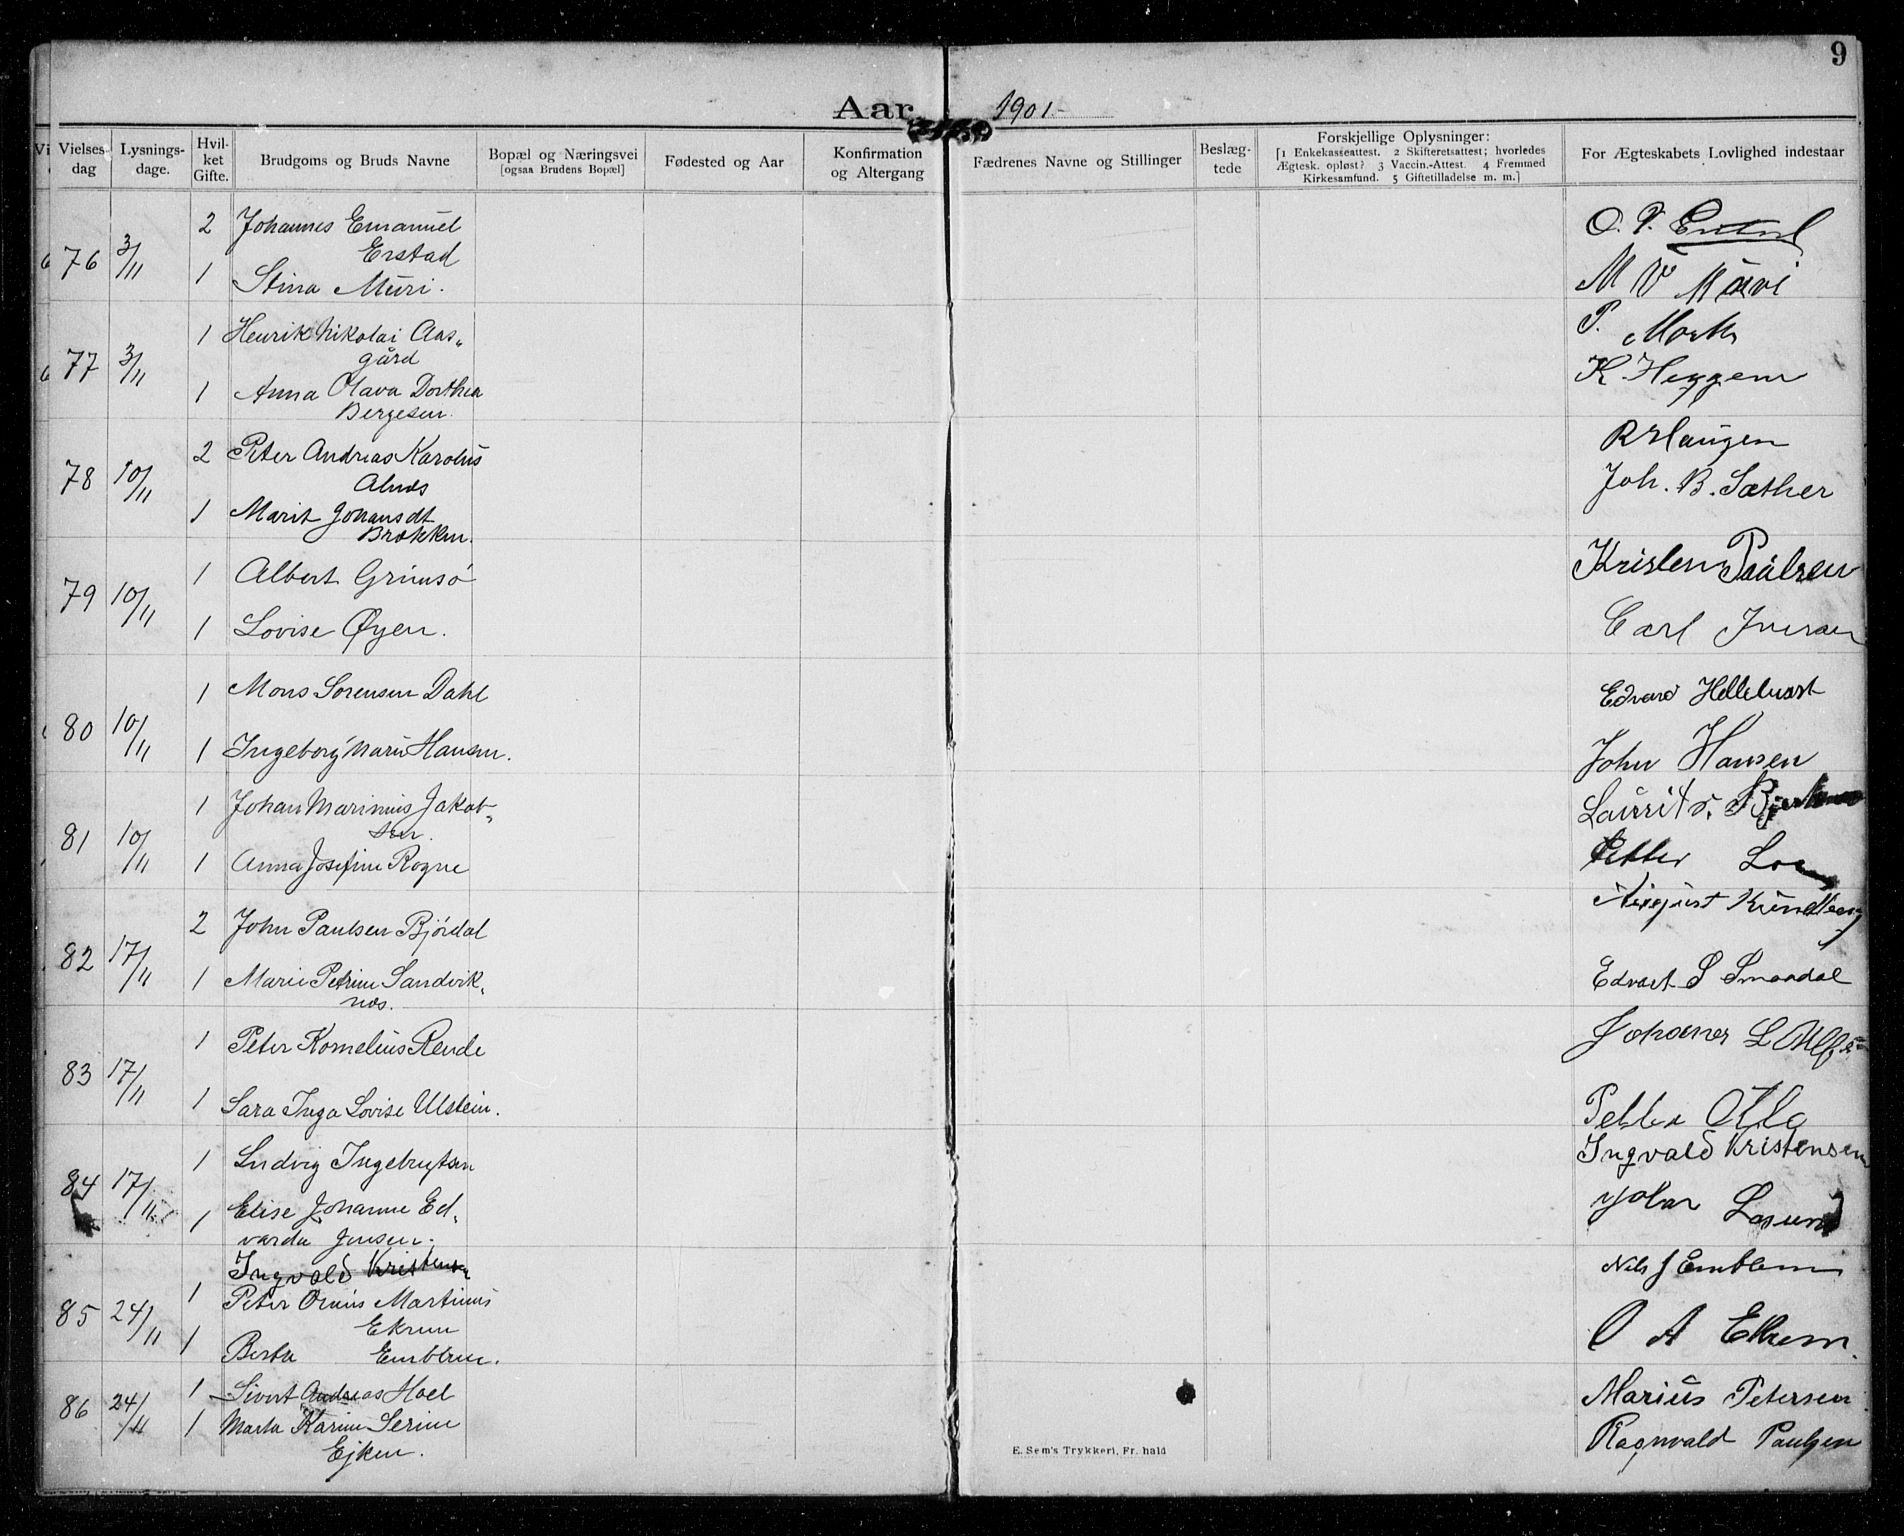 9
Aar 1901.
Vielses dag
Lysnings-dage.
Hvil-ket Gifte.
Brudgoms og Bruds Navne
Bopæl og Næringsvei [ogsaa Brudens Bopæl]
Fødested og Aar
Konfirmation og Altergang
Fædrenes Navne og Stillinger
Beslæg-tede
Forskjellige Oplysninger:
[1 Enkekasseattest. 2 Skifteretsattest; hvorledes
Ægtesk. opløst? 3 Vaccin.-Attest. 4 Fremmed
Kirkesamfund. 5 Giftetilladelse m. m.]
For Ægteskabets Lovlighed indestaar
76 3/11 2 Johannes Emanuel
Erstad
1 Stina Muri.
O. P.
M V
77 3/11 1 Henrik Nikolai Aas-
gård
1 Anna Olava Dorthea
Bergesen.
P.
K. Heggem
78 10/11 2 Peter Andreas Karolus
Alnes
1 Marit Johansdt
Brækken.
Haugen
Joh. B. Sæther
79 10/11 1 Albert Grimsö
1 Lovise Øyen.
Kristen Paulsen
Carl Iversen
80 10/11 1 Mons Sørensen Dahl
1 Ingeborg Marie Hansen.
Edvard
John Hansen
81 10/11 1 Johan Marinius Jakob-
sen.
1 Anna Josefine Rogne
Laurits.
Petter
82 17/11 2 John Paulsen Bjørdal
1 Marie Petrine Sandvik-
nes.
August
Edvart S Smaadal
83 17/11 1 Peter Kornelius Rende
1 Sara Inga Lovise Ulstein.
Johannes L
Petter
84 17/11 1 Ludvig Ingebrigtsen
1 Elise Johanne Ed-
varda Jensen.
Ingvald Kristensen
85 24/11 Ingvald Kristensen
1 Peter Martinus
Ekrem
1 Berta Emblem.
Nils J Emblem
O A Ekrem.
86 24/11 1 Sivert Andreas Hoel
1 Marta Karine Serine
Ejken.
Marius Petersen
Ragnvald Paulsen
E. Sem's Trykkeri, Fr. hald